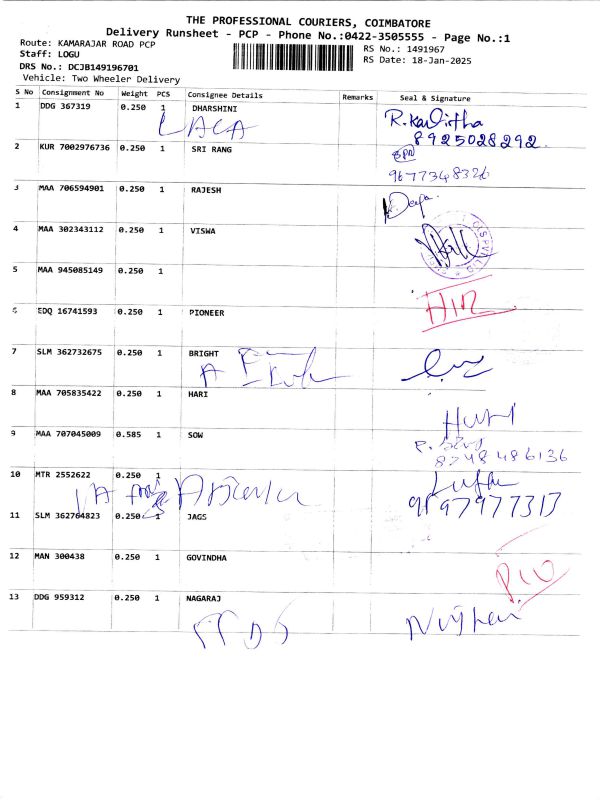 THE PROFESSIONAL COURIERS, COIMBATORE
Delivery Runsheet - PCP - Phone No.:0422-3505555 - Page No.:1
Route: KAMARAJAR ROAD PCP
RS No.: 1491967
Staff: LOGU
RS Date: 18-Jan-2025
DRS No.: DCJB149196701
Vehicle: Two Wheeler Delivery
S No Consignment No Weight PCS Consignee Details Remarks Seal & Signature
1 DDG 367319 0.250 1 DHARSHINI
LACA
8925028292
2 KUR 7002976736 0.250 1 SRI RANG
9677348326
3 MAA 706594901 0.250 1 RAJESH
4 MAA 302343112 0.250 1 VISWA
5 MAA 945085149 0.250 1
6 EDQ 16741593 0.250 1 PIONEER
7 SLM 362732675 0.250 1 BRIGHT
8 MAA 705835422 0.250 1 HARI
9 MAA 707045009 0.585 1 SOW
8748486136
10 MTR 2552622 0.250 1
11 SLM 362764823 0.250 1 JAGS
12 MAN 300438 0.250 1 GOVINDHA
13 DDG 959312 0.250 1 NAGARAJ